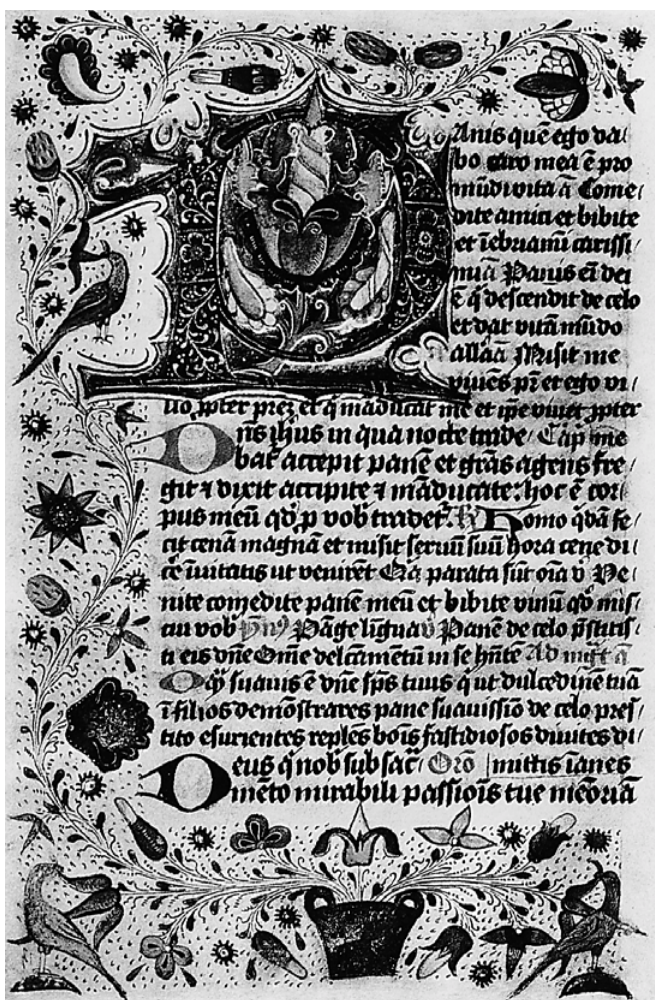 Panis quē ego da/
bo caro mea ē pro
mūdi vita ā Come/
dite amici et bibite
et īebriamī carissi/
mi ā Panis eī dei
ē q̄ descendit de celo
et dat vitā mūdo
allāā Misit me
vivēs pr̄ et ego vi/
vo ꝓpter prez et q̄ māducat me et ip̄e vivet ꝓpter
Dn̄s ih̄us in qua nocte trade/ Cap̄ me
bat accepit panē et grās agens fre/
git ⁊ dixit accipite ⁊ māducate: hoc ē cor/
pus meū qd̄ p̄ vob̄ tradet̄. R̄ Homo q̄dā fe/
cit cenā magnā et misit servū suū hora cene di/
cē īvitatis ut venirēt Q̄a parata sūt oīa v̄ Ve/
nite comedite panē meū et bibite vinū qd̄ mis/
cui vob̄ Pāge līgua v̄ Panē de celo p̄stitis/
ti eis dn̄e Om̄e delc̄amētū in se hn̄te Ad mg̅t ā
O q̄ suavis ē dn̄e sp̄s tuus q̄ ut dulcedinē tuā
ī filios demōstrares pane suavissīo de celo pres/
tito esurientes reples boīs fastidiosos divites di/
Deus q̄ nob̄ sub sac̄/ Orō mittis īanes
mēto mirabili passioīs tue mēoriā